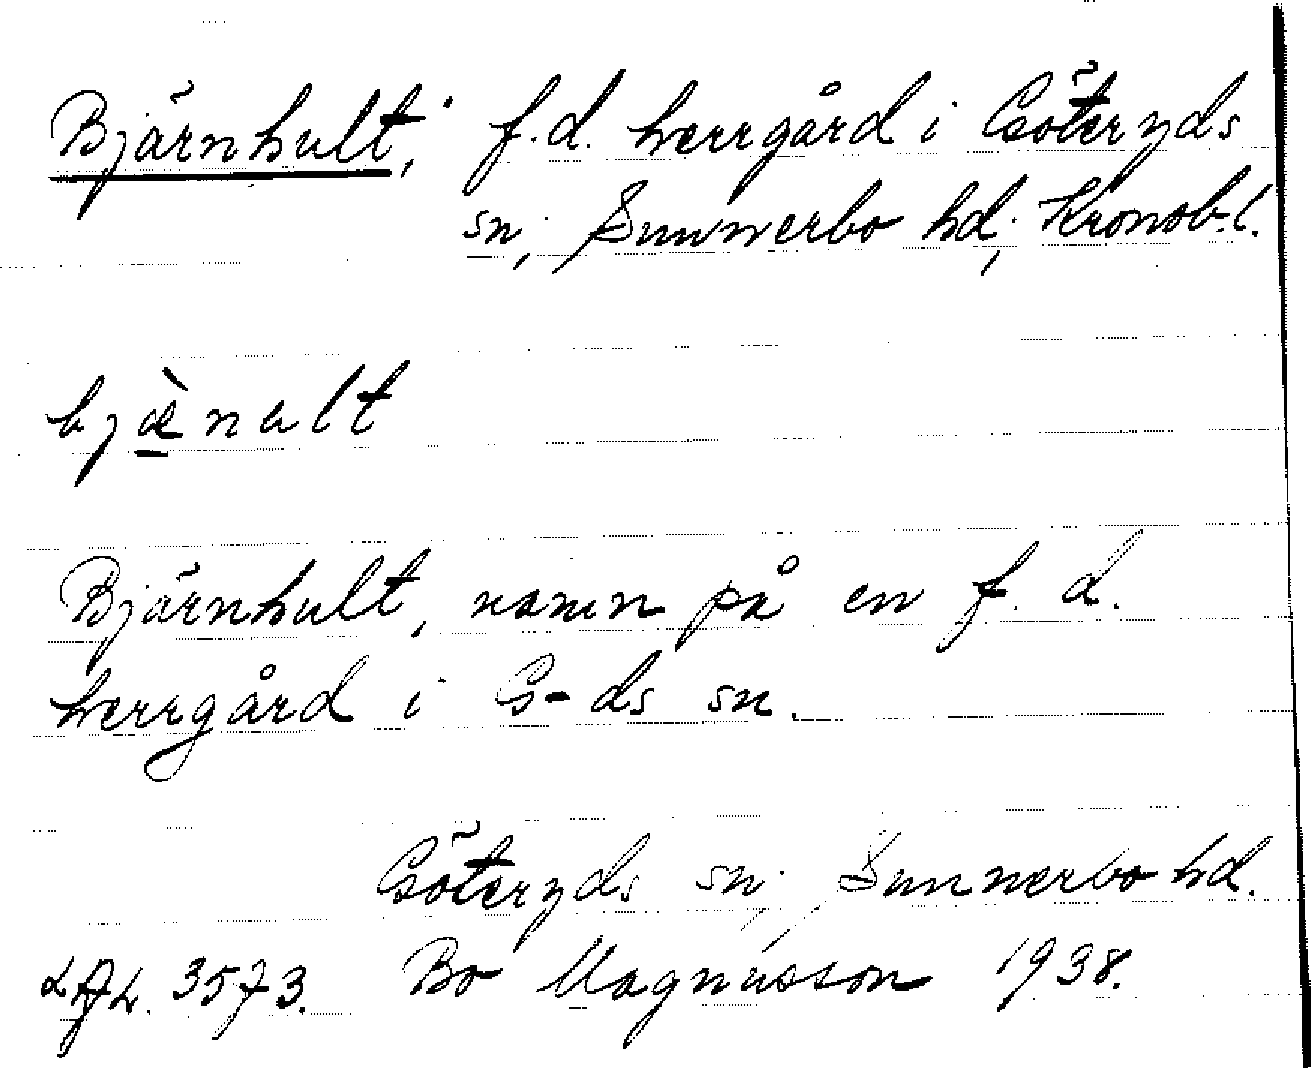 Bjärnhult, f.d. herrgård i Göteryds
sn, Sunnerbo hd, Kronob. l.
bjæ̀nult
Bjärnhult, namn på en f. d.
herrgård i G-ds sn.
Göteryds sn, Sunnerbo hd.
3573. Bo Magnusson 1938.